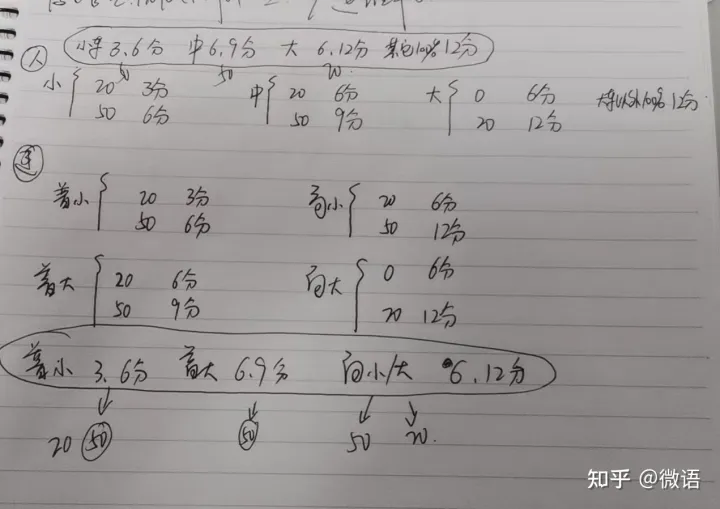 人 小车 3.6分 中 6.9分 大 6.12分 其它100% 12分
50 50 20
小 { 20 3分 中 { 20 6分 大 { 0 6分 大车以外100% 12分
50 6分 50 9分 20 12分
普小 { 20 3分 高小 { 20 6分
50 6分 50 12分
普大 { 20 6分 高大 { 0 6分
50 9分 20 12分
普小 3.6分 普大 6.9分 高小/大 6.12分
20 50 50 50 20
知乎 @微语